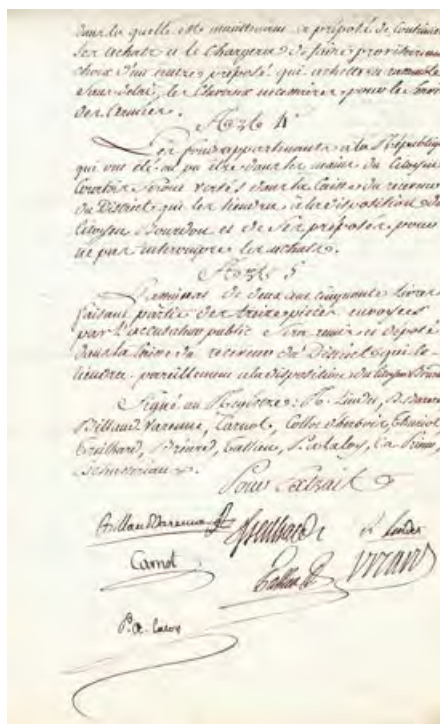 dans laquelle est maintenant le préposé de continuer
ses achats et le Chargera de faire provisoirement
choix d'un autre préposé qui achettera ensemble
et sans délai, les Chevaux nécessaires pour le service
des Armées.
Art. 4
Les fonds appartenants à la République
qui ont été ou pu être dans les mains du Citoyen
seront versés dans la Caisse du receveur
du District qui les tiendra à la disposition du
Citoyen Bourdon et de ses préposés pour
ne pas interrompre les achats.
Art. 5
de deux cent cinquante livres
faisant partie des treize pièces envoyées
par l'accusateur public sera remis et déposé
dans la Caisse du receveur du District qui le
tiendra pareillement à la disposition du Citoyen
Signé au Registre: R. Lindet, B. Barère
Billaud Varenne, Carnot, Collot d'herbois, Thuriot,
Treilhard, Bréard, Tallien, P. A. Laloy, C. A. Prieur,
Eschasseriaux.
Pour Extrait
Billaud Varenne Treilhard R. Lindet
Carnot Tallien Bréard
P. A. Laloy